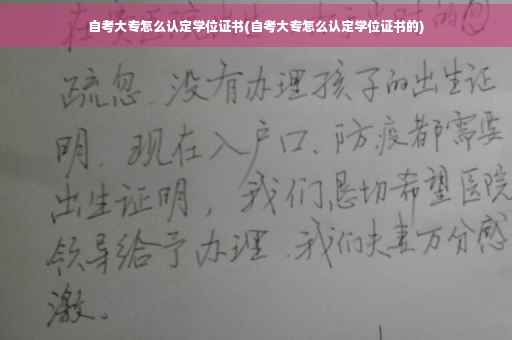 自考大专怎么认定学位证书(自考大专怎么认定学位证书的)
疏忽、没有办理孩子的出生证
明、现在入户口、防疫都需要
出生证明，我们恳切希望医院
领导给予办理、我们夫妻万分感
激。